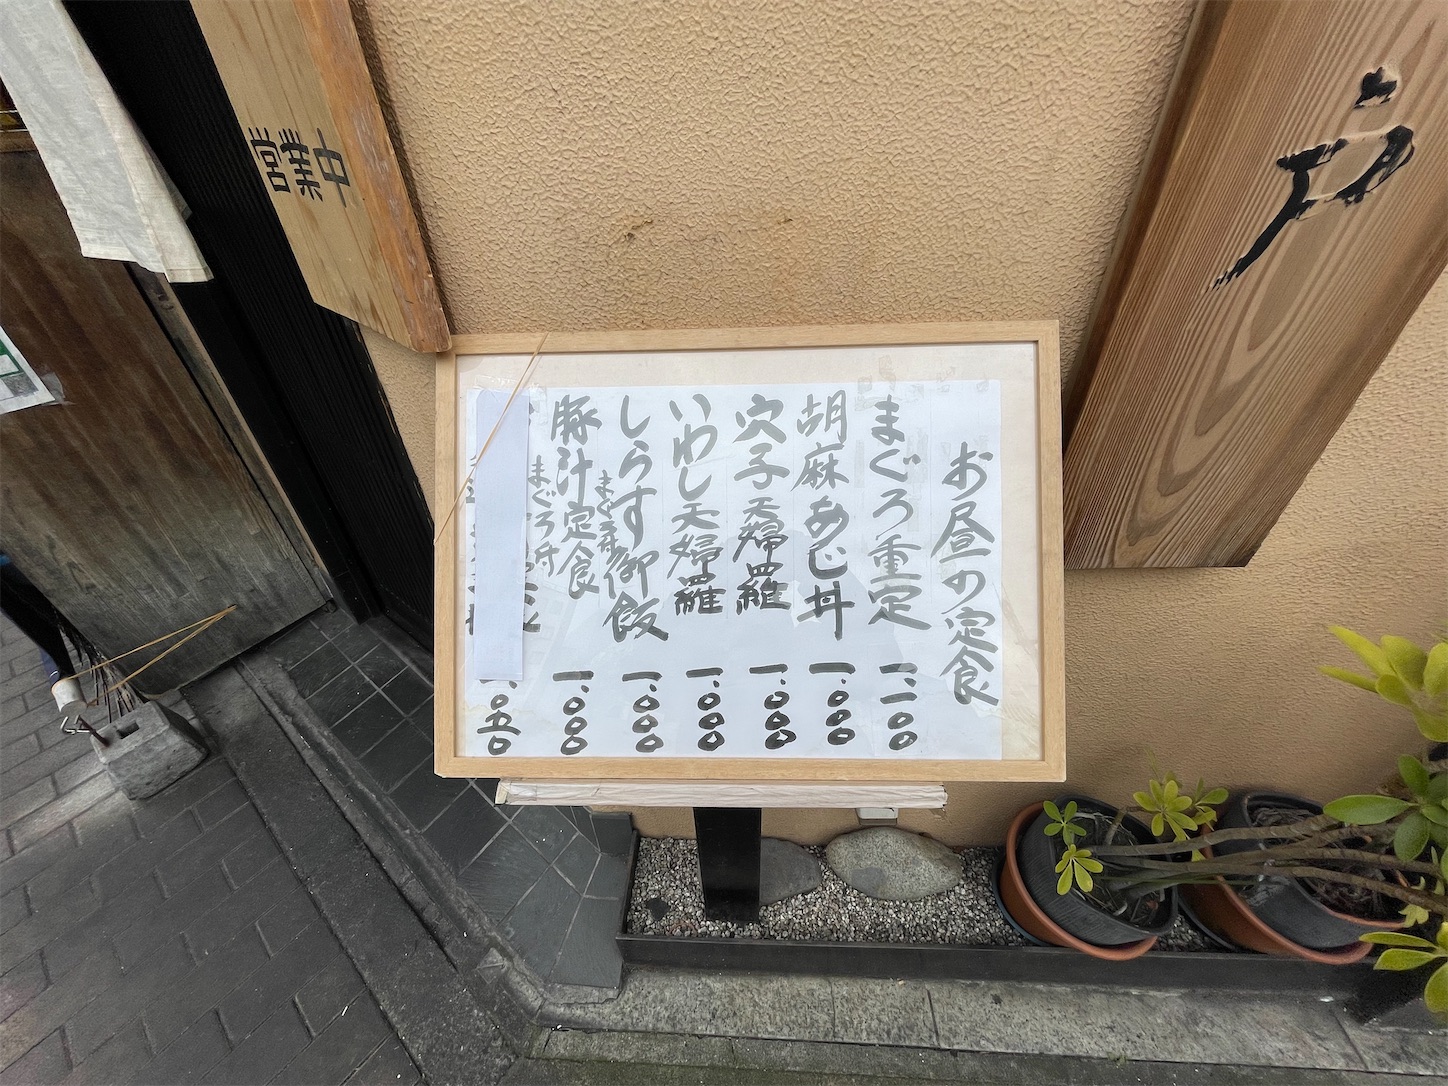 営業中
お昼の定食
まぐろ重定 二.一〇〇
胡麻あじ丼 一.〇〇〇
穴子天婦羅 一.〇〇〇
いわし天婦羅 一.〇〇〇
しらす御飯 一.〇〇〇
豚汁定食 一.〇〇〇
まぐろ丼
.〇五〇